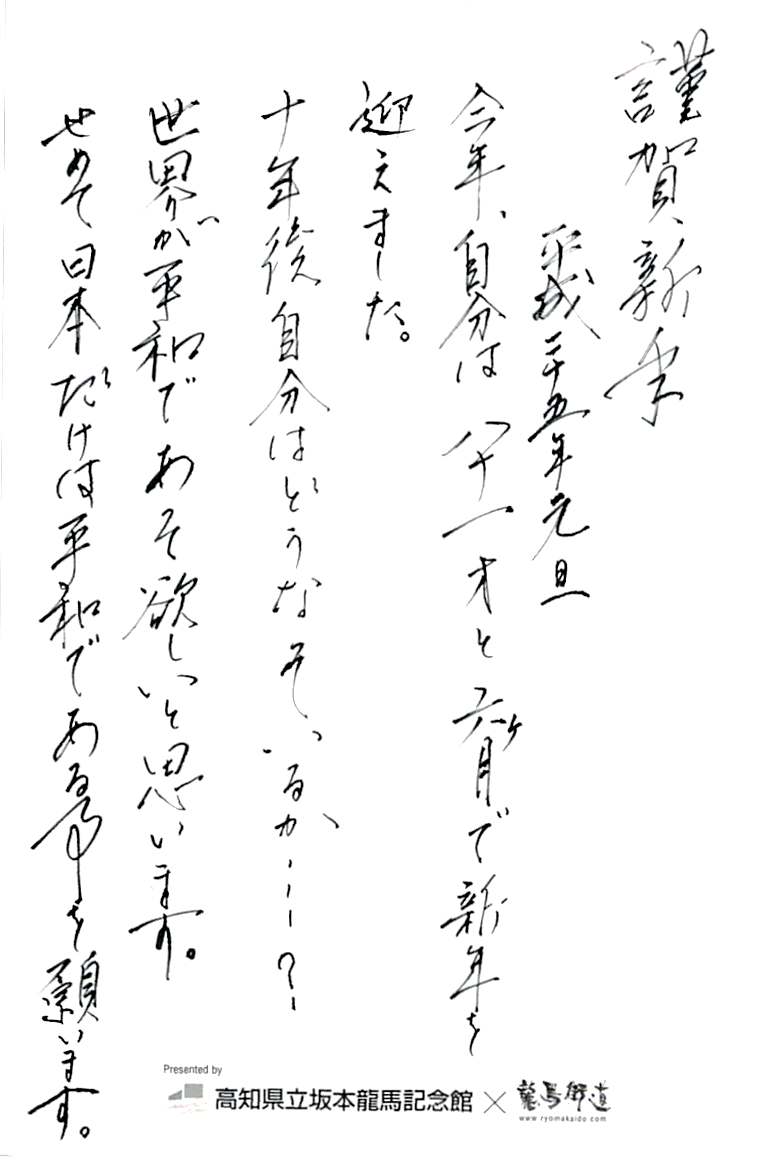 謹賀新年
平成二十五年元旦
今年、自分は八十一才と六ヶ月で新年を
迎えました。
十年後自分はどうなっているか…?
世界が平和であって欲しいと思います。
せめて日本だけは平和である事を願います。
Presented by
高知県立坂本龍馬記念館×龍馬街道
www.ryomakaido.com